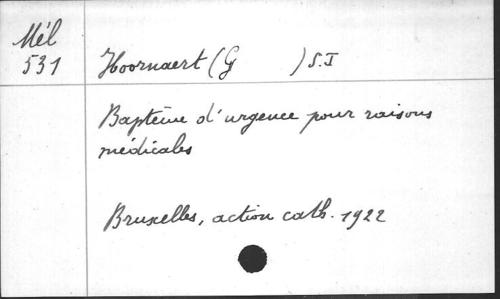 Mél
531
Hoornaert (G ) S.I
Baptême d'urgence pour raisons
médicales
Bruxelles, action cath. 1922